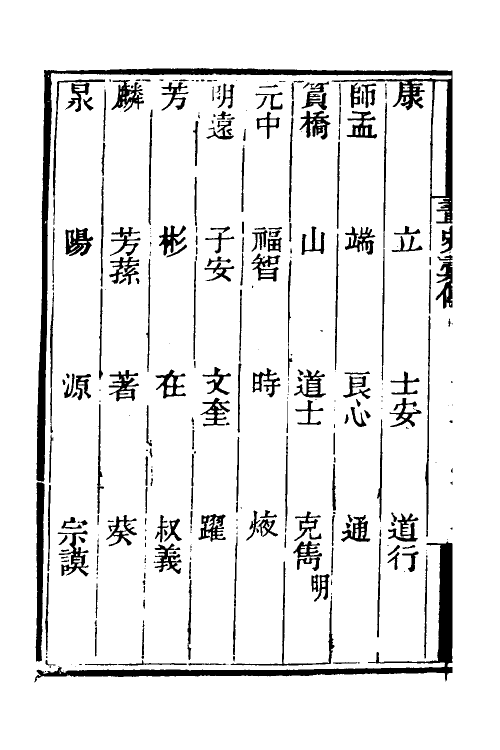 康　立　士安　道行
師孟　端　良心　通
員橋　山　道士　克雋明
元中　福智　時　焲
明遠　子安　文奎　躍
芳　彬　在　叔義
麟　芳蓀　著　葵
杲　陽　源　宗謨
畫史彙傳